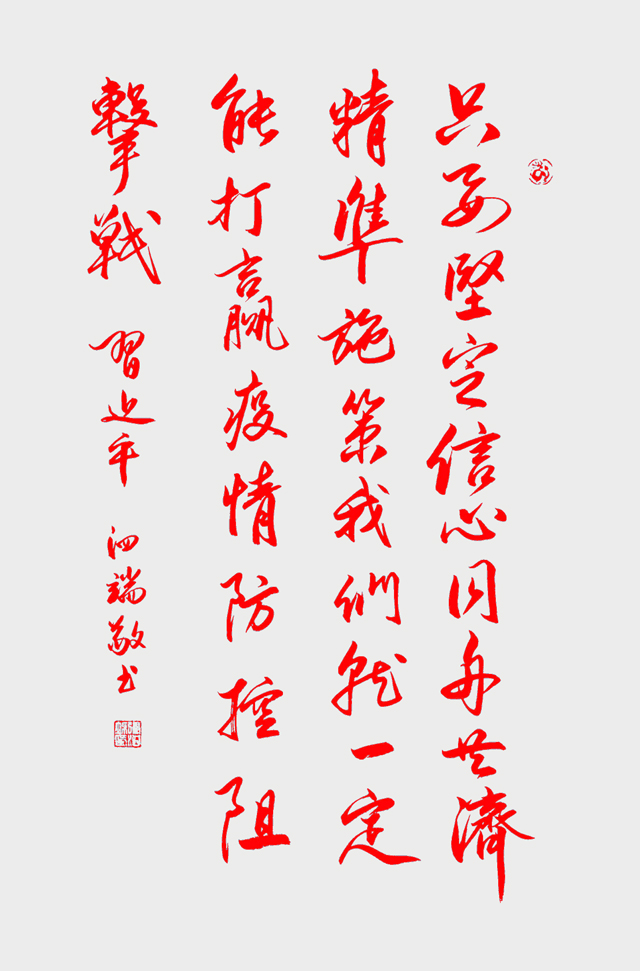 只要堅定信心同舟共濟
精準施策我們就一定
能打贏疫情防控阻
擊戰 習近平 泗端敬书